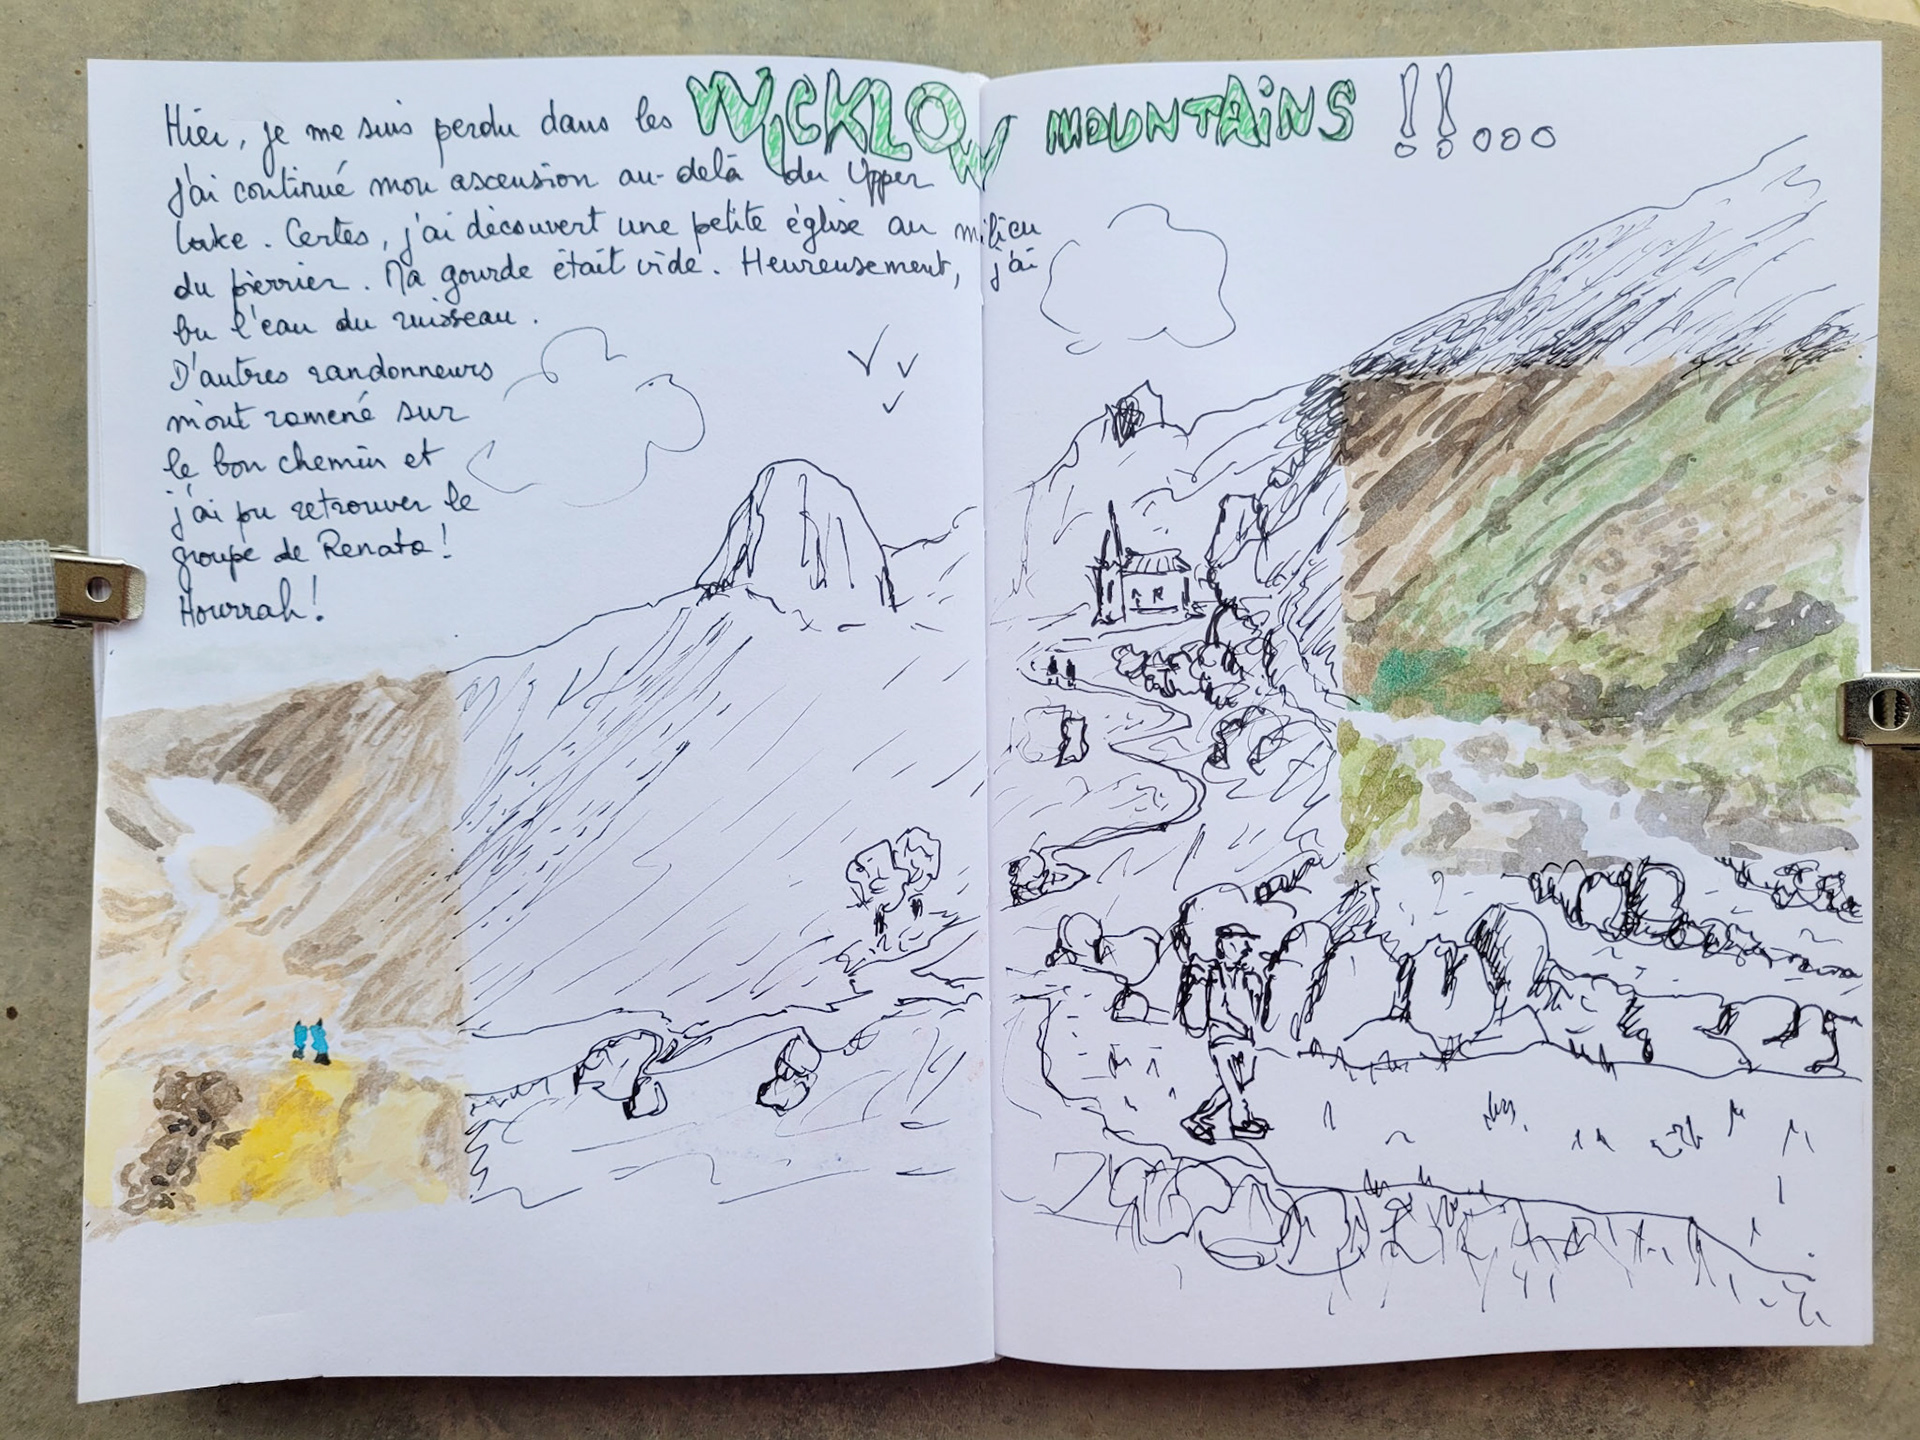 Hier, je me suis perdu dans les WICKLOW MOUNTAINS !!...
J'ai continué mon ascension au-delà du Upper
Lake. Certes, j'ai découvert une petite église au milieu
du pierrier. Ma gourde était vide. Heureusement, j'ai
bu l'eau du ruisseau.
D'autres randonneurs
m'ont ramené sur
le bon chemin et
j'ai pu retrouver le
groupe de Renato!
Hourrah!